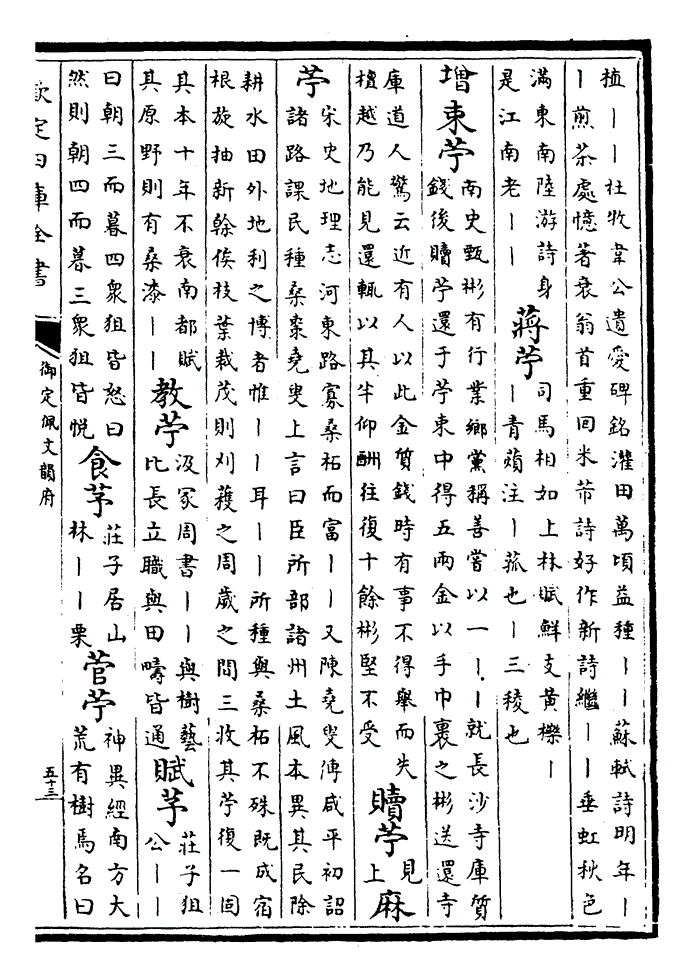 植丨丨杜牧韋公遺愛碑銘灌田萬頃益種丨丨蘇軾詩明年丨
丨煎茶處憶著衰翁首重回米芾詩好作新詩繼丨丨垂虹秋色
滿東南陸游詩身
是江南老丨丨
蔣苧
司馬相如上林賦鮮支黃櫟丨
丨青薠注丨菰也丨三稜也
增束苧
南史甄彬有行業鄉黨稱善嘗以一丨丨就長沙寺庫質
錢後贖苧還于苧束中得五兩金以手巾裹之彬送還寺
庫道人驚云近有人以此金質錢時有事不得舉而失
檀越乃能見還輒以其半仰酬往復十餘彬堅不受
贖苧
見
上
麻
苧
宋史地理志河東路寡桑柘而富丨丨又陳堯叟傳咸平初詔
諸路課民種桑棗堯叟上言曰臣所部諸州土風本異其民除
耕水田外地利之博者惟丨丨耳丨丨所種與桑柘不殊既成宿
根旋抽新榦俟枝葉裁茂則刈穫之周歲之間三收其苧復一固
其本十年不衰南都賦
其原野則有桑漆丨丨
教苧
汲冢周書丨丨與樹藝
比長立職與田疇皆通
賦芧
莊子狙
公丨丨
曰朝三而暮四衆狙皆怒曰
然則朝四而暮三衆狙皆悅
食芧
莊子居山
林丨丨栗
菅苧
神異經南方大
荒有樹焉名曰
欽定四庫全書
御定佩文韻府
五十三